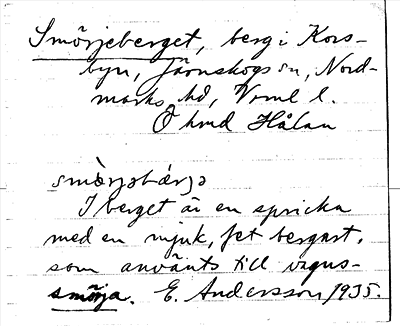 Smörjeberget, berg i Kors-
byn, Järnskogs sn, Nord-
marks hd, Vrml l.
Ö hmd Hålan
smö̀rjəbár̡jə
I berget är en spricka
med en mjuk, fet bergart,
som använts till vagns-
smörja. E. Andersson 1935.